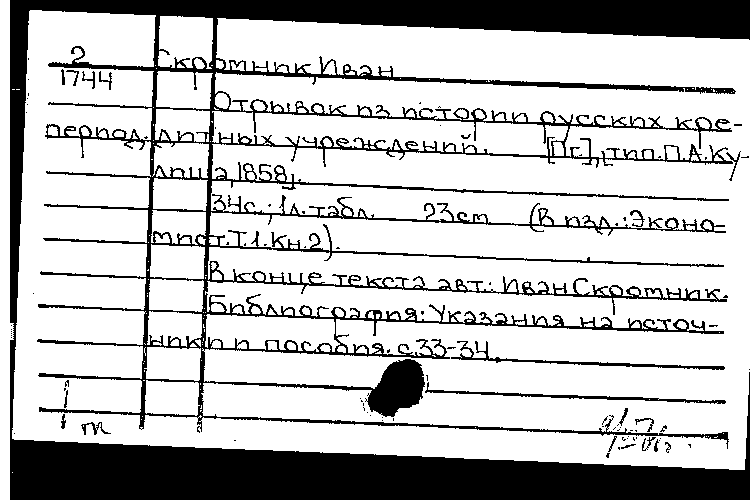 2
1744
Скромник, Иван
Отрывок из истории русских кре-
период. дитных учреждений. [Пг], [тип. П.А. Ку-
лиша, 1858].
34с.; 1л. табл. 23см (В изд.: Эконо-
мист. Т.1. Кн.2).
В конце текста авт.: Иван Скромник.
Библиография: Указания на источ-
ники и пособия. с.33-34.
т